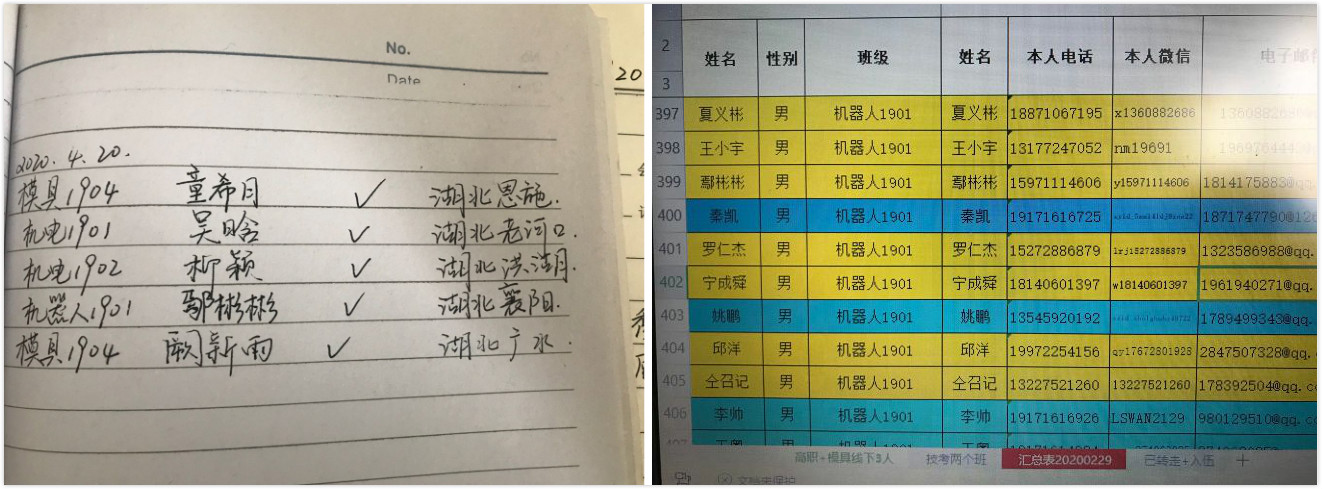 No.
Date
2020.4.20.
模具1904 童希月 ✓ 湖北恩施.
机电1901 吴晗 ✓ 湖北老河口.
机电1902 柳颖 ✓ 湖北洪湖.
机器人1901 鄢彬彬 ✓ 湖北襄阳.
模具1904 阚新雨 ✓ 湖北广水.
20
2 姓名 性别 班级 姓名 本人电话 本人微信 电子邮件
3
397 夏义彬 男 机器人1901 夏义彬 18871067195 x1360882686
398 王小宇 男 机器人1901 王小宇 13177247052 nm19691
399 鄢彬彬 男 机器人1901 鄢彬彬 15971114606 y15971114606 1814175883@qq.
400 秦凯 男 机器人1901 秦凯 19171616725 1871747790@12
401 罗仁杰 男 机器人1901 罗仁杰 15272886879 lrji5272886879 1323586988@qq.
402 宁成舜 男 机器人1901 宁成舜 18140601397 w18140601397 1961940271@qq.
403 姚鹏 男 机器人1901 姚鹏 13545920192 1789499343@qq.
404 邱洋 男 机器人1901 邱洋 19972254156 qy17672801928 2847507328@qq.
405 仝召记 男 机器人1901 仝召记 13227521260 13227521260 178392504@qq.c
406 李帅 男 机器人1901 李帅 19171616926 LSWAN2129 980129510@qq.c
高职+模具线下3人 技考两个班 汇总表20200229 已转走+入伍 +
文档未保护